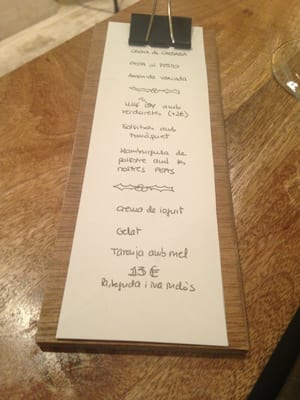 CREMA DE CARBASSA
PASTA AL PESTO
Amanida variada
verduretes (+2€)
Salsitxes amb
tomàquet
Hamburguesa de
pollastre amb les
nostres PATATES
Crema de iogurt
Gelat
Taronja amb mel
13 €
Pa, beguda i iva inclòs